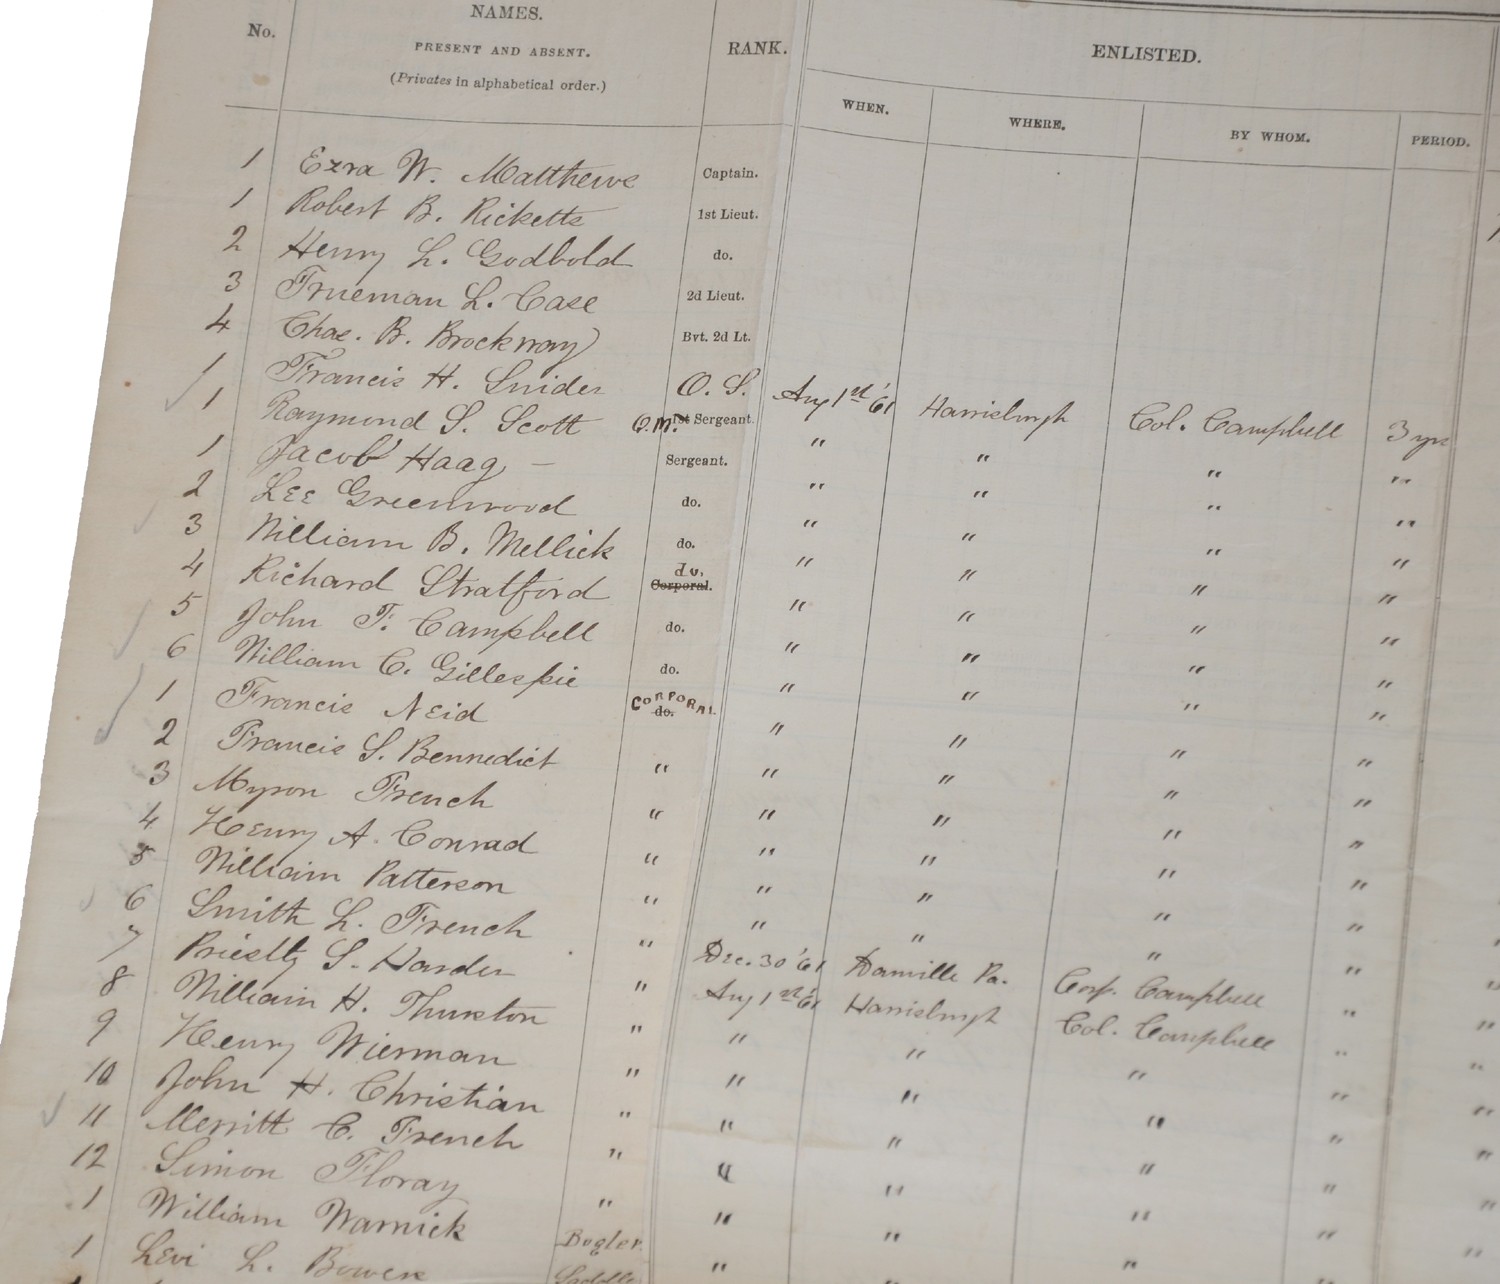 NAMES.
No. PRESENT AND ABSENT. RANK. ENLISTED.
(Privates in alphabetical order.)
WHEN. WHERE. BY WHOM. PERIOD.
1 Ezra W. Matthews Captain.
1 Robert B. Ricketts 1st Lieut.
2 Henry L. Godbold do.
3 Trueman L. Case 2d Lieut.
4 Chas. B. Brockway Bvt. 2d Lt.
1 Francis H. Snider O. S. Aug 1st '61 Harrisburgh Col. Campbell 3 yrs
1 Raymond S. Scott Q.M. 1st Sergeant. " " " "
1 Jacob Haag – Sergeant. " " " "
2 Lee Greenwood do. " " " "
3 William B. Mellick do. " " " "
4 Richard Stratford do. Corporal. " " " "
5 John F. Campbell do. " " " "
6 William C. Gillespie do. " " " "
1 Francis Neid CORPORAL do. " " " "
2 Francis S. Bennedict " " " " "
3 Myron French " " " " "
4 Henry A. Conrad " " " " "
5 William Patterson " " " " "
6 Smith L. French " " " " "
7 Priestly S. Harder " Dec. 30 '61 Danville Pa. Corp. Campbell "
8 William H. Thurston " Aug 1st '61 Harrisburgh Col. Campbell "
9 Henry Wierman " " " " "
10 John H. Christian " " " " "
11 Merritt C. French " " " " "
12 Simon Floray " " " " "
1 William Warnick Bugler. " " " "
1 Levi L. Bowers Saddle " "